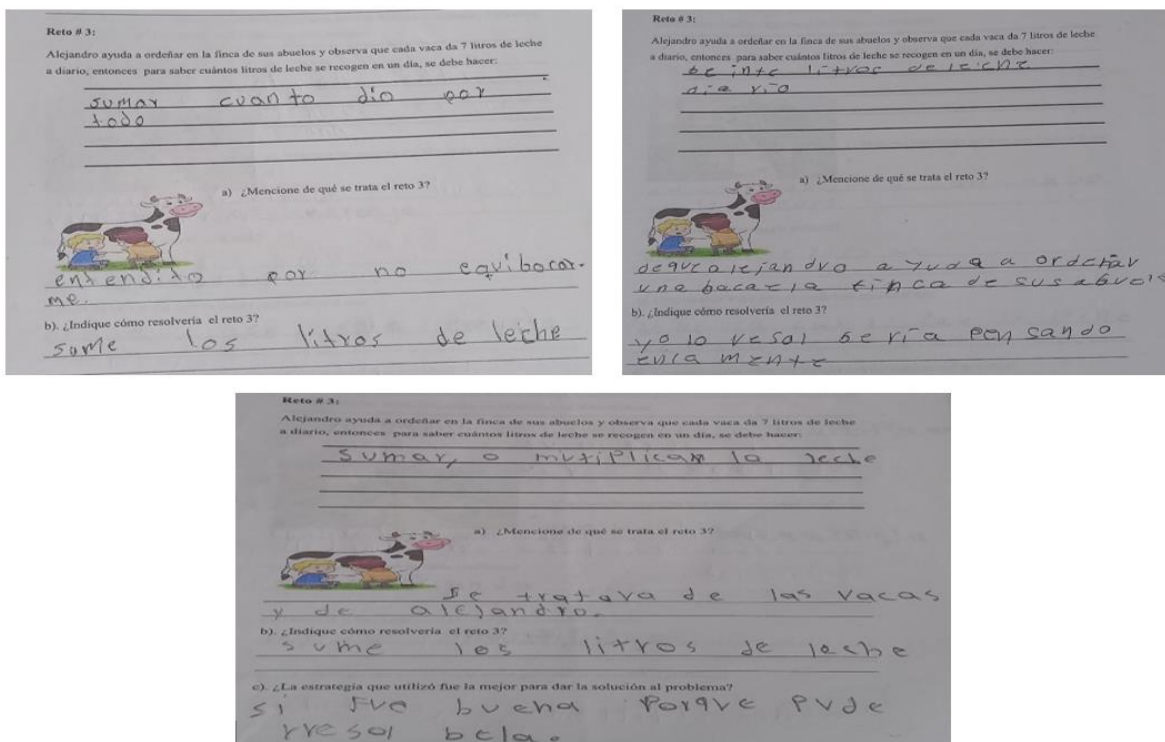 Reto # 3:
Alejandro ayuda a ordeñar en la finca de sus abuelos y observa que cada vaca da 7 litros de leche
a diario, entonces para saber cuántos litros de leche se recogen en un día, se debe hacer:
sumar cuanto dio por
todo
a) ¿Mencione de qué se trata el reto 3?
entendido por no equibocar-
me.
b). ¿Indique cómo resolvería el reto 3?
sume los litros de leche
Reto # 3:
Alejandro ayuda a ordeñar en la finca de sus abuelos y observa que cada vaca da 7 litros de leche
a diario, entonces para saber cuántos litros de leche se recogen en un día, se debe hacer:
beinte litros de leiche
dia rio
a) ¿Mencione de qué se trata el reto 3?
de que alejandro a yuda a ordeñar
una baca en la finca de sus abuelo
b). ¿Indique cómo resolvería el reto 3?
yo lo resol beria pensando
Reto # 3:
Alejandro ayuda a ordeñar en la finca de sus abuelos y observa que cada vaca da 7 litros de leche
a diario, entonces para saber cuántos litros de leche se recogen en un día, se debe hacer:
sumar, o mutiplicar la leche
a) ¿Mencione de qué se trata el reto 3?
se tratava de las vacas
y de alejandro.
b). ¿Indique cómo resolvería el reto 3?
sume los litros de leche
c). ¿La estrategia que utilizó fue la mejor para dar la solución al problema?
si fue buena porque pude
rresol bela.